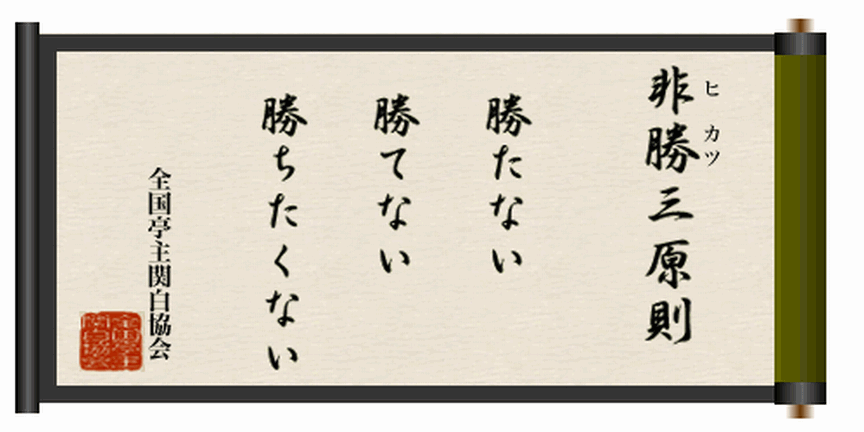 非勝三原則
ヒカツ
勝たない
勝てない
勝ちたくない
全国亭主関白協会